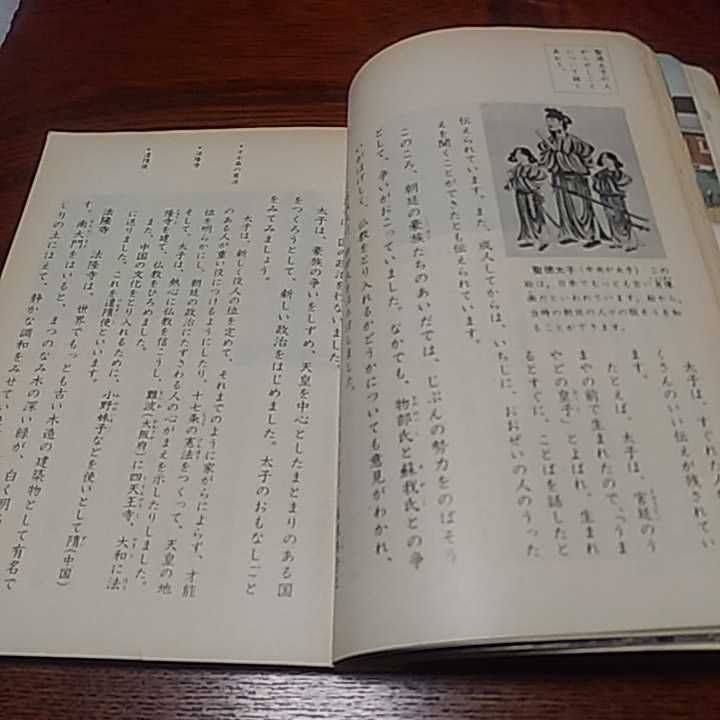 聖徳太子の人
がらやしごと
について調べ
ましょう。
聖徳太子(中央が太子) この
絵は、日本でもっとも古い肖像
画だといわれています。絵から、
当時の朝廷の人々の服そうを知
ることができます。
太子は、すぐれた人
くさんのいい伝えが残されてい
ます。
たとえば、太子は、宮廷のう
まやの前で生まれたので、「うま
やどの皇子」とよばれ、生まれ
るとすぐに、ことばを話したと
伝えられています。また、成人してからは、いちじに、おおぜいの人のうった
えを聞くことができたとも伝えられています。
このころ、朝廷の豪族たちのあいだでは、じぶんの勢力をのばそう
として、争いがおこっていました。なかでも、物部氏と蘇我氏との争
いがはげしく、仏教をとり入れるかどうかについても意見がわかれ、
の政治を行ないました。
太子は、豪族の争いをしずめ、天皇を中心としたまとまりのある国
をつくろうとして、新しい政治をはじめました。太子のおもなしごと
をみてみましょう。
•十七条の憲法
太子は、新しく役人の位を定めて、それまでのように家がらによらず、才能
のある人が重い役につけるようにしたり、十七条の憲法をつくって、天皇の地
位を明らかにし、朝廷の政治にたずさわる人の心がまえを示したりしました。
•法隆寺
そして、太子は、熱心に仏教を信こうし、難波(大阪府)に四天王寺、大和に法
隆寺を建て、仏教をひろめました。
•遣隋使
また、中国の文化をとり入れるために、小野妹子などを使いとして隋(中国)
に送りました。これを遣隋使といいます。
法隆寺 法隆寺は、世界でもっとも古い木造の建築物として有名で
す。南大門をはいると、まつのなみ木の深い緑が、白く明
りの土にはえて、静かな調和をみせてい